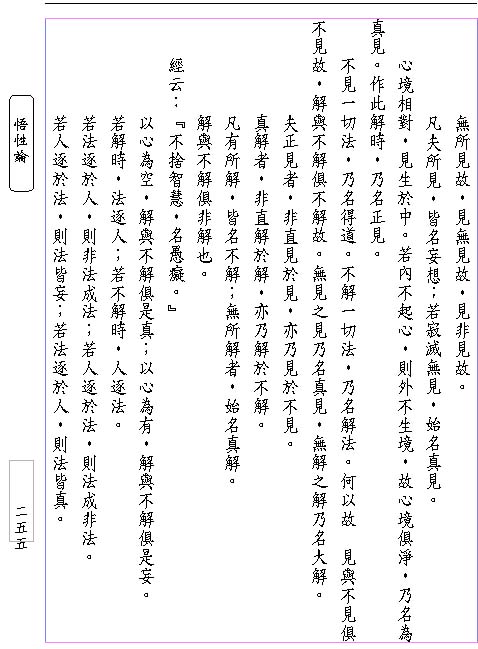 無所見故，見無見故，見非見故。
凡夫所見，皆名妄想；若寂滅無見，始名真見。
心境相對，見生於中。若內不起心，則外不生境，故心境俱淨，乃名為
真見。作此解時，乃名正見。
不見一切法，乃名得道。不解一切法，乃名解法。何以故　見與不見俱
不見故，解與不解俱不解故。無見之見乃名真見，無解之解乃名大解。
夫正見者，非直見於見，亦乃見於不見。
真解者，非直解於解，亦乃解於不解。
凡有所解，皆名不解；無所解者，始名真解。
解與不解俱非解也。
經云：『不捨智慧，名愚癡。』
以心為空，解與不解俱是真；以心為有，解與不解俱是妄。
若解時，法逐人；若不解時，人逐法。
若法逐於人，則非法成法；若人逐於法，則法成非法。
若人逐於法，則法皆妄；若法逐於人，則法皆真。
悟性論
二五五